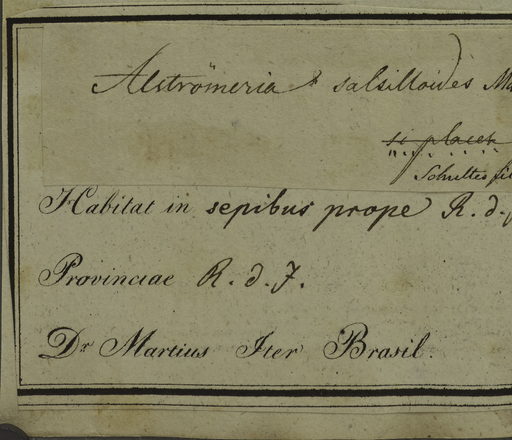 Alströmeria salsilloides Ma
si placet
Schultes fil
Habitat in sepibus prope R. d. J
Provinciae R. d. J.
Dr Martius Iter Brasil.